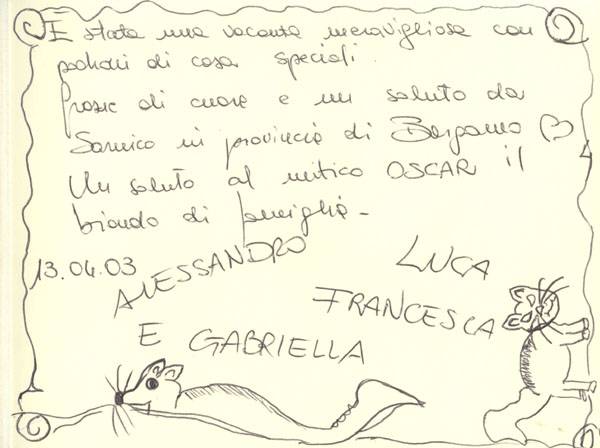 È stata una vacanza meravigliosa con
padroni di casa speciali.
Grazie di cuore e un saluto da
Sarnico in provincia di Bergamo
Un saluto al mitico OSCAR il
biondo di famiglia -
13.04.03
ALESSANDRO
LUCA
FRANCESCA
E GABRIELLA